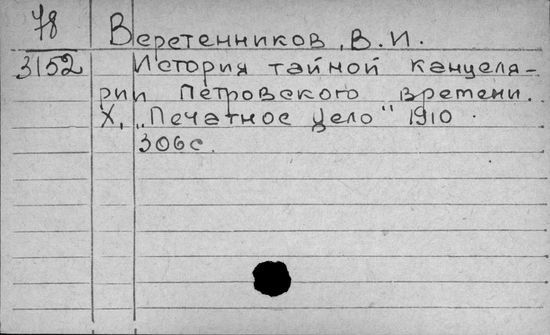 78 Веретенников, В.И.
3152 История тайной канцеля-
рии Петровского времени.
Х. „Печатное Дело" 1910
306с.